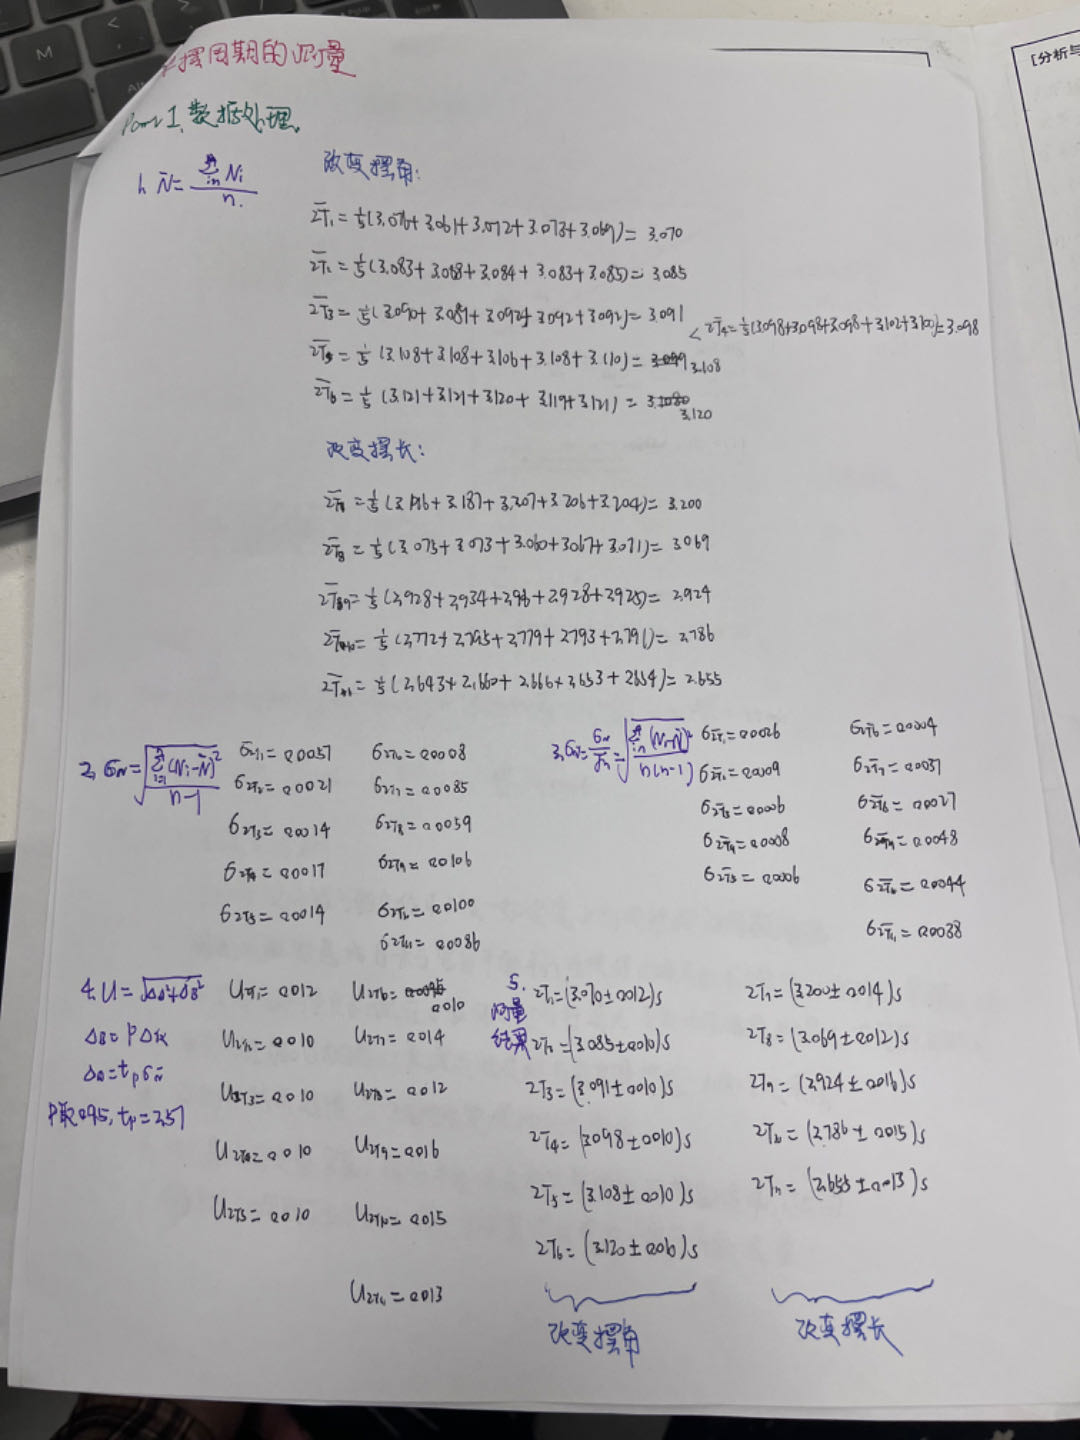 M
Alt
[分析与
单摆周期的测量
Part 1. 数据处理.
1. N̄ = ΣNi / n.
改变摆角:
2T̄₁ = 1/5(3.076+3.061+3.072+3.073+3.069) = 3.070
2T̄₂ = 1/5(3.083+3.088+3.084+3.083+3.085) = 3.085
2T̄₃ = 1/5(3.090+3.089+3.092+3.092+3.092) = 3.091
2T̄₄ = 1/5(3.098+3.098+3.098+3.102+3.100) = 3.098
2T̄₅ = 1/5(3.108+3.108+3.106+3.108+3.110) = 3.108
2T̄₆ = 1/5(3.121+3.121+3.120+3.119+3.121) = 3.120
改变摆长:
2T̄₇ = 1/5(3.196+3.187+3.207+3.206+3.204) = 3.200
2T̄₈ = 1/5(3.073+3.073+3.060+3.067+3.071) = 3.069
2T̄₉ = 1/5(2.928+2.934+ +2.928+2.925) = 2.924
2T̄₁₀ = 1/5(2.772+2.795+2.779+2.793+2.791) = 2.786
2T̄₁₁ = 1/5(2.643+2.660+2.666+2.653+2.654) = 2.655
2. σN = √(Σ(Ni-N̄)² / n-1)
σ2T₁ = 0.0057 σ2T₆ = 0.0008
σ2T₂ = 0.0021 σ2T₇ = 0.0085
σ2T₃ = 0.0014 σ2T₈ = 0.0059
σ2T₄ = 0.0017 σ2T₉ = 0.0106
σ2T₅ = 0.0014 σ2T₁₀ = 0.0100
σ2T₁₁ = 0.0086
3. σN̄ = σN/√n = √(Σ(Ni-N̄)² / n(n-1))
σ2T̄₁ = 0.0026 σ2T̄₆ = 0.0004
σ2T̄₂ = 0.0009 σ2T̄₇ = 0.0037
σ2T̄₃ = 0.0006 σ2T̄₈ = 0.0027
σ2T̄₄ = 0.0008 σ2T̄₉ = 0.0048
σ2T̄₅ = 0.0006 σ2T̄₁₀ = 0.0044
σ2T̄₁₁ = 0.0038
4. U = √(ΔA²+ΔB²)
ΔB = PΔ仪
ΔA = tpσN̄
P取0.95, tp = 2.57
U2T₁ = 0.012 U2T₆ = 0.010
U2T₂ = 0.010 U2T₇ = 0.014
U2T₃ = 0.010 U2T₈ = 0.012
U2T₄ = 0.010 U2T₉ = 0.016
U2T₅ = 0.010 U2T₁₀ = 0.015
U2T₁₁ = 0.013
5. 测量结果
2T₁ = (3.070±0.012)s 2T₇ = (3.200±0.014)s
2T₂ = (3.085±0.010)s 2T₈ = (3.069±0.012)s
2T₃ = (3.091±0.010)s 2T₉ = (2.924±0.016)s
2T₄ = (3.098±0.010)s 2T₁₀ = (2.786±0.015)s
2T₅ = (3.108±0.010)s 2T₁₁ = (2.655±0.013)s
2T₆ = (3.120±0.010)s
改变摆角 改变摆长